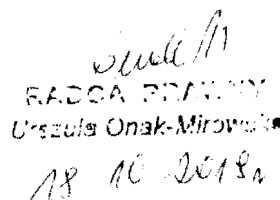 RADCA PRAWNY
Urszula Onak-Mirowska
18 10 2019r